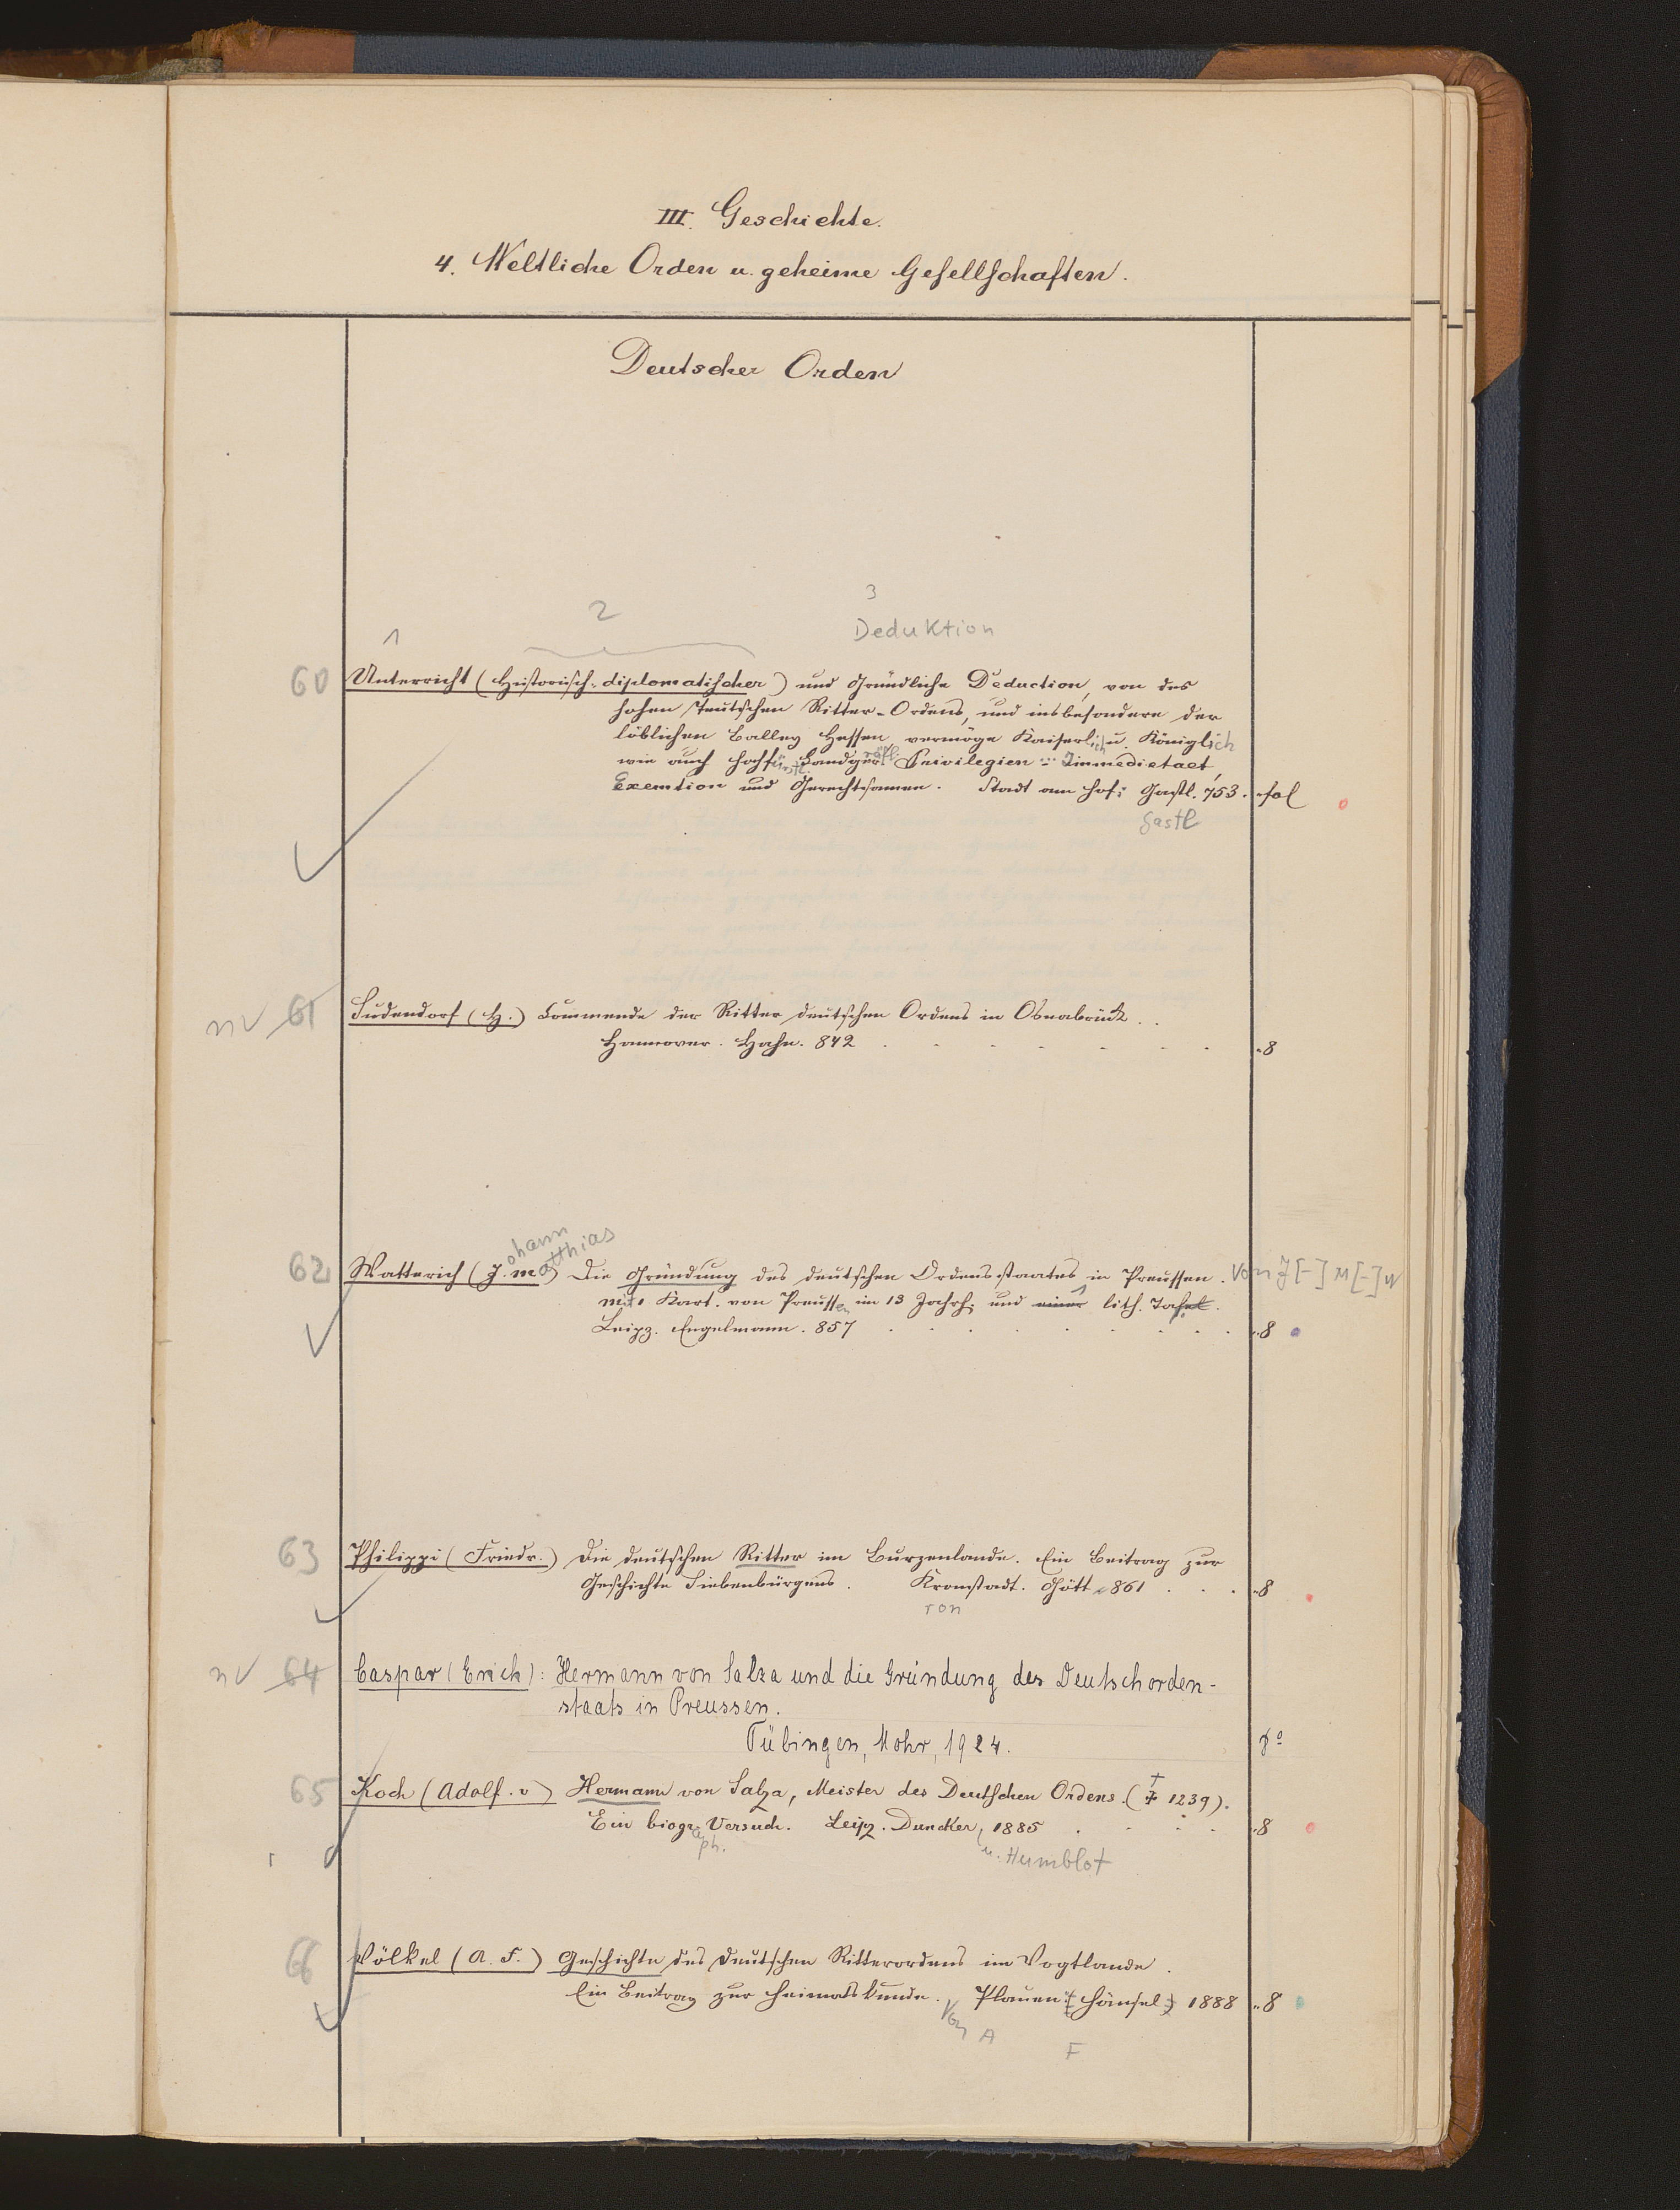 III. Geschichte.
4. Weltliche Orden u. geheime Gesellschaften.
Deutscher Orden
1 2 3
Deduktion
60 Unterricht (Historisch-diplomatischer) und Gründliche Deduction, von des
hohen Teutschen Ritter-Ordens, und insbesondere der
löblichen Balley Hessen vermöge Kaiserlich u. Königlich
wie auch hochfürstl. Landgräfl. Privilegien Immedietaet,
Exemtion und Gerechtsamen. Stadt am Hof: Gastl. 753. fol
Gastl
nv 61 Sudendorf (H.) Commende der Ritter deutschen Ordens in Osnabrück.
Hannover. Hahn. 842 8
62 Watterich (Johann Matthias) Die Gründung des deutschen Ordensstaates in Preussen. Von J[-] M[-] W
mit 1 Kart. von Preussen im 13 Jahrh. und einer 1 lith. Tafel.
Leipz. Engelmann. 857 8
63 Philippi (Friedr.) Die deutschen Ritter im Burzenlande. Ein Beitrag zur
Geschichte Siebenbürgens. Kronstadt. Gött 861 8
ron
nv 64 Caspar (Erich): Hermann von Salza und die Gründung des Deutschorden-
staats in Preussen.
Tübingen, Mohr, 1924. 8°
65 Koch (Adolf. v) Hermann von Salza, Meister des Deutschen Ordens. († 1239).
Ein biograph. Versuch. Leipz. Duncker, 1885 8
u. Humblot
66 Völkel (A. F.) Geschichte des deutschen Ritterordens im Vogtlande.
Ein Beitrag zur Heimatkunde. Plauen: (Hänsel) 1888 8
Von A F